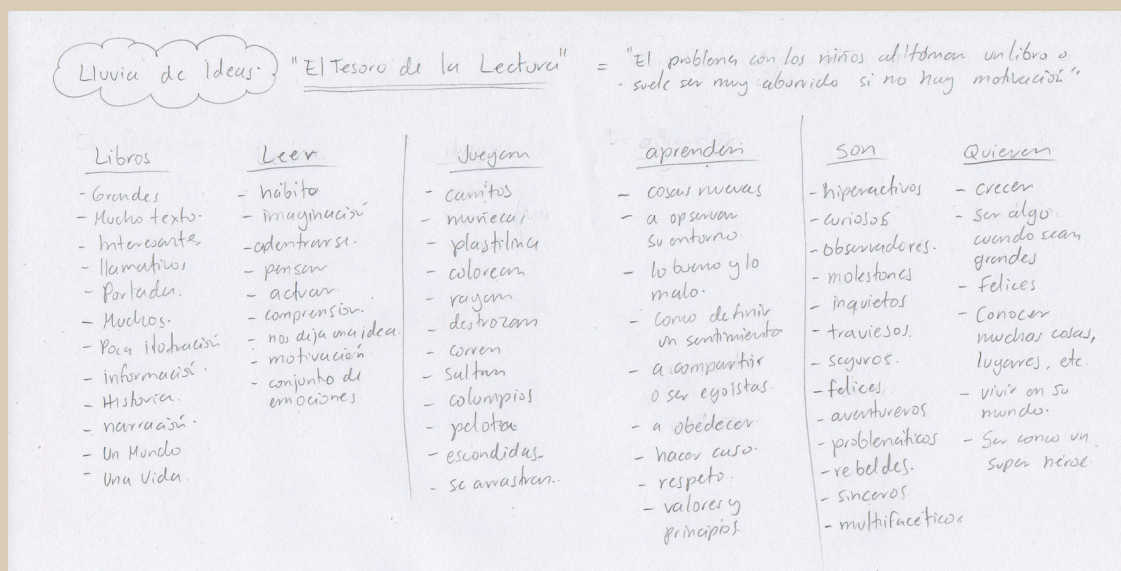 Lluvia de Ideas.
"El Tesoro de la Lectura"
= "El problema con los niños al tomar un libro o
suele ser muy aburrido si no hay motivación".
Libros
- Grandes
- Mucho texto.
- Interesante
- llamativos
- Portada.
- Muchos.
- Poca ilustración
- información.
- Historia.
- narración.
- Un Mundo
- Una Vida.
Leer
- hábito
- imaginación
- adentrarse.
- pensar
- actuar
- comprensión.
- nos deja una idea.
- motivación
- conjunto de
emociones
Juegan
- carritos
- muñeca,
- plastilina
- colorean
- rayan
- destrozan
- corren
- saltan
- columpios
- pelota
- escondidas
- se arrastran.
aprenden
- cosas nuevas
- a observar
su entorno.
- lo bueno y lo
malo.
- como definir
un sentimiento
- a compartir
o ser egoistas.
- a obedecer
- hacer caso.
- respeto.
- valores y
principios.
Son
- hiperactivos
- curiosos
- observadores.
- molestones
- inquietos
- traviesos.
- seguros.
- felices
- aventureros
- problemáticos
- rebeldes.
- sinceros
- multifacéticos
Quieren
- crecer
- ser algo
cuando sean
grandes
- Felices
- Conocer
muchas cosas,
lugares, etc.
- vivir en su
mundo.
- Ser como un
super héroe